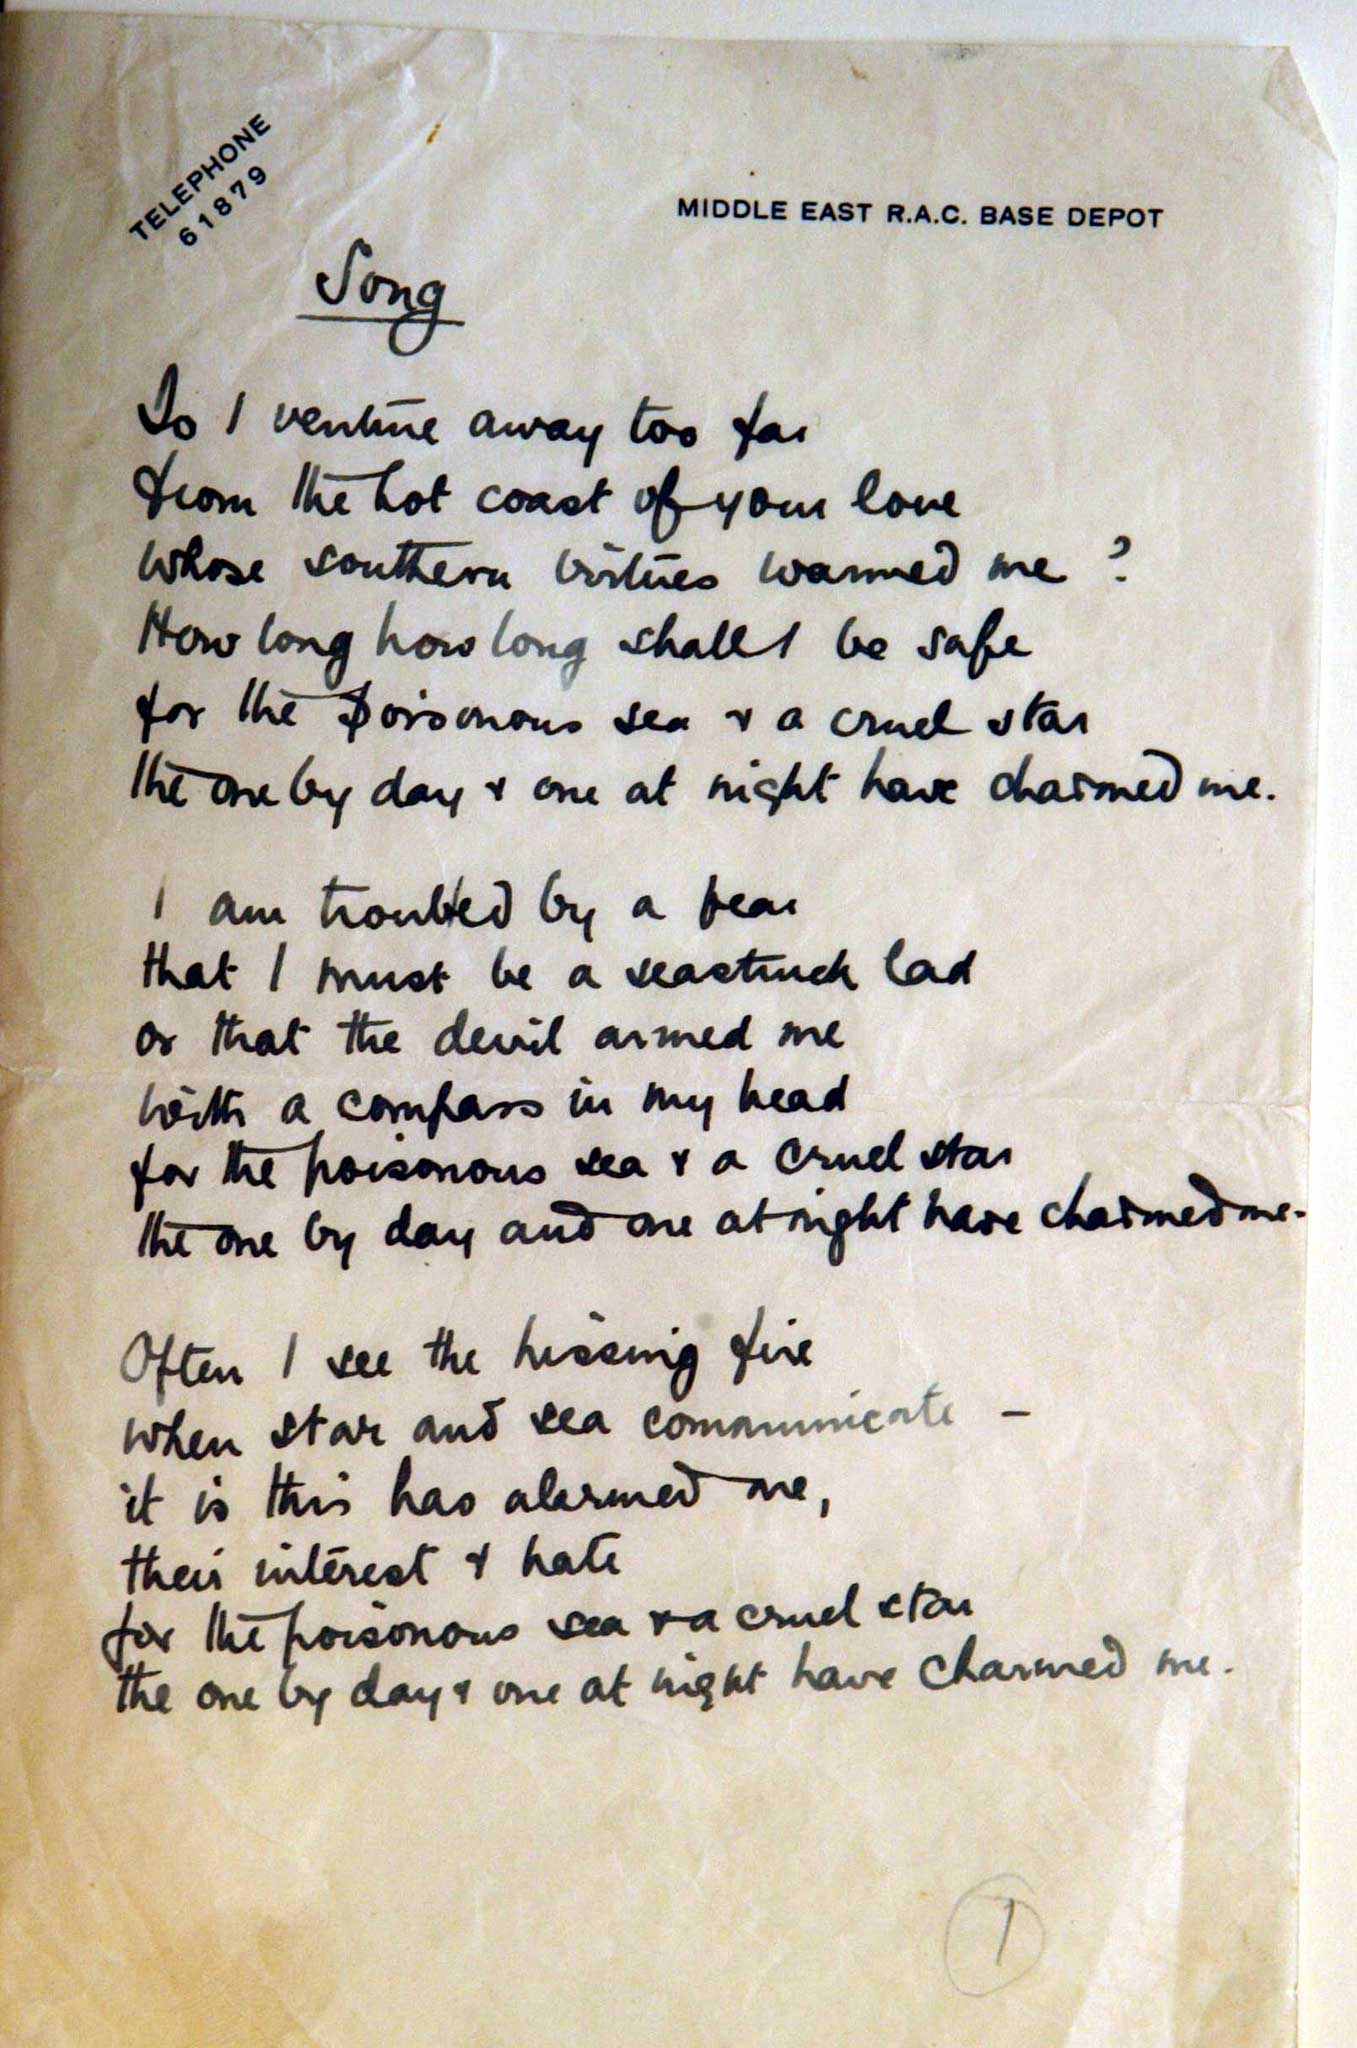 TELEPHONE
61879
MIDDLE EAST R.A.C. BASE DEPOT
Song
Do I venture away too far
from the hot coast of your love
whose southern virtues warmed me?
How long how long shall I be safe
for the poisonous sea & a cruel star
the one by day & one at night have charmed me.
I am troubled by a fear
that I must be a seastruck lad
or that the devil armed me
with a compass in my head
for the poisonous sea & a cruel star
the one by day and one at night have charmed me.
Often I see the hissing fire
when star and sea communicate –
it is this has alarmed me,
their interest & hate
for the poisonous sea & a cruel star
the one by day & one at night have charmed me.
1